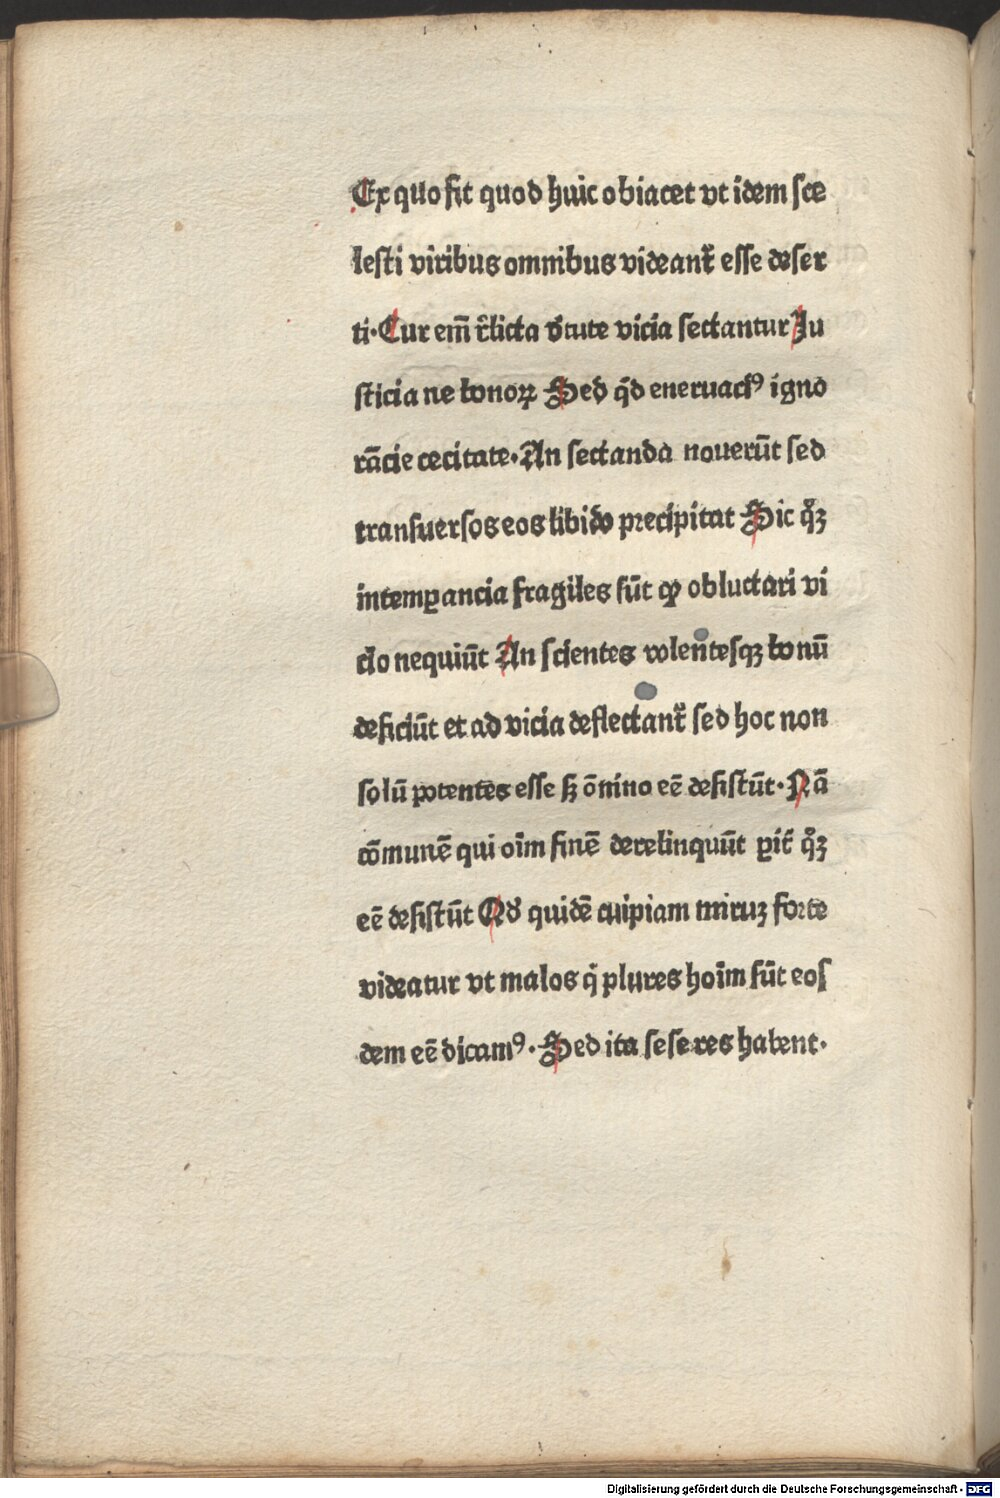 Ex quo fit quod huic obiacet vt idem sce
lesti viribus omnibus videant᷑ esse deser
ti·Cur em̄ r̄licta v̓tute vicia sectantur Ju
sticia ne bonoꝝ Sed qͥd eneruaciꝰ igno
rācie cecitate·An sectanda nouerūt sed
transuersos eos libido precipitat Sic qͦꝫ
intemꝑancia fragiles sūt qꝫ obluctari vi
cio nequiūt An scientes volentesqꝫ bonū
deficiūt et ad vicia deflectant᷑ sed hoc non
solū potentes esse sꝫ ōnino eē desistūt·Nā
cōmunē qui oīm finē derelinquūt ꝑit᷑ qͦꝫ
eē desistūt Qd̓ quidē cuipiam miruꝫ forte
videatur vt malos qͥ plures hoīm sūt eos
dem eē dicamꝰ·Sed ita sese res habent·
Digitalisierung gefördert durch die Deutsche Forschungsgemeinschaft - DFG